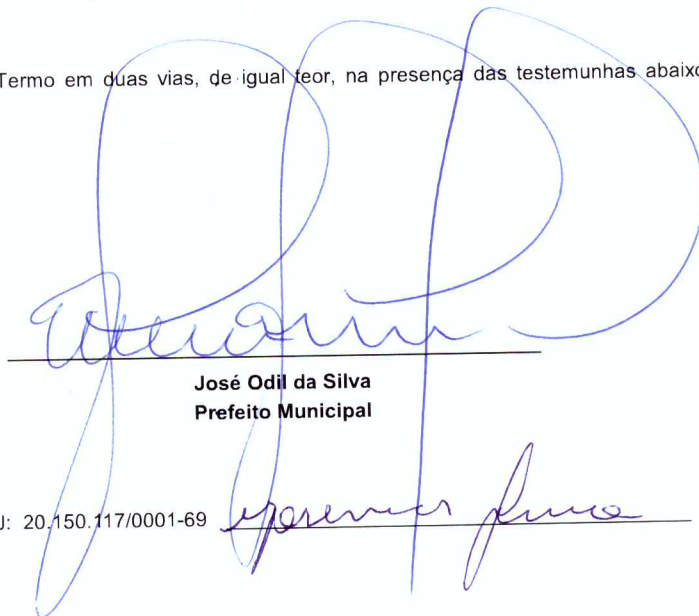 Termo em duas vias, de igual teor, na presença das testemunhas abaixo
José Odil da Silva
Prefeito Municipal
J: 20.150.117/0001-69